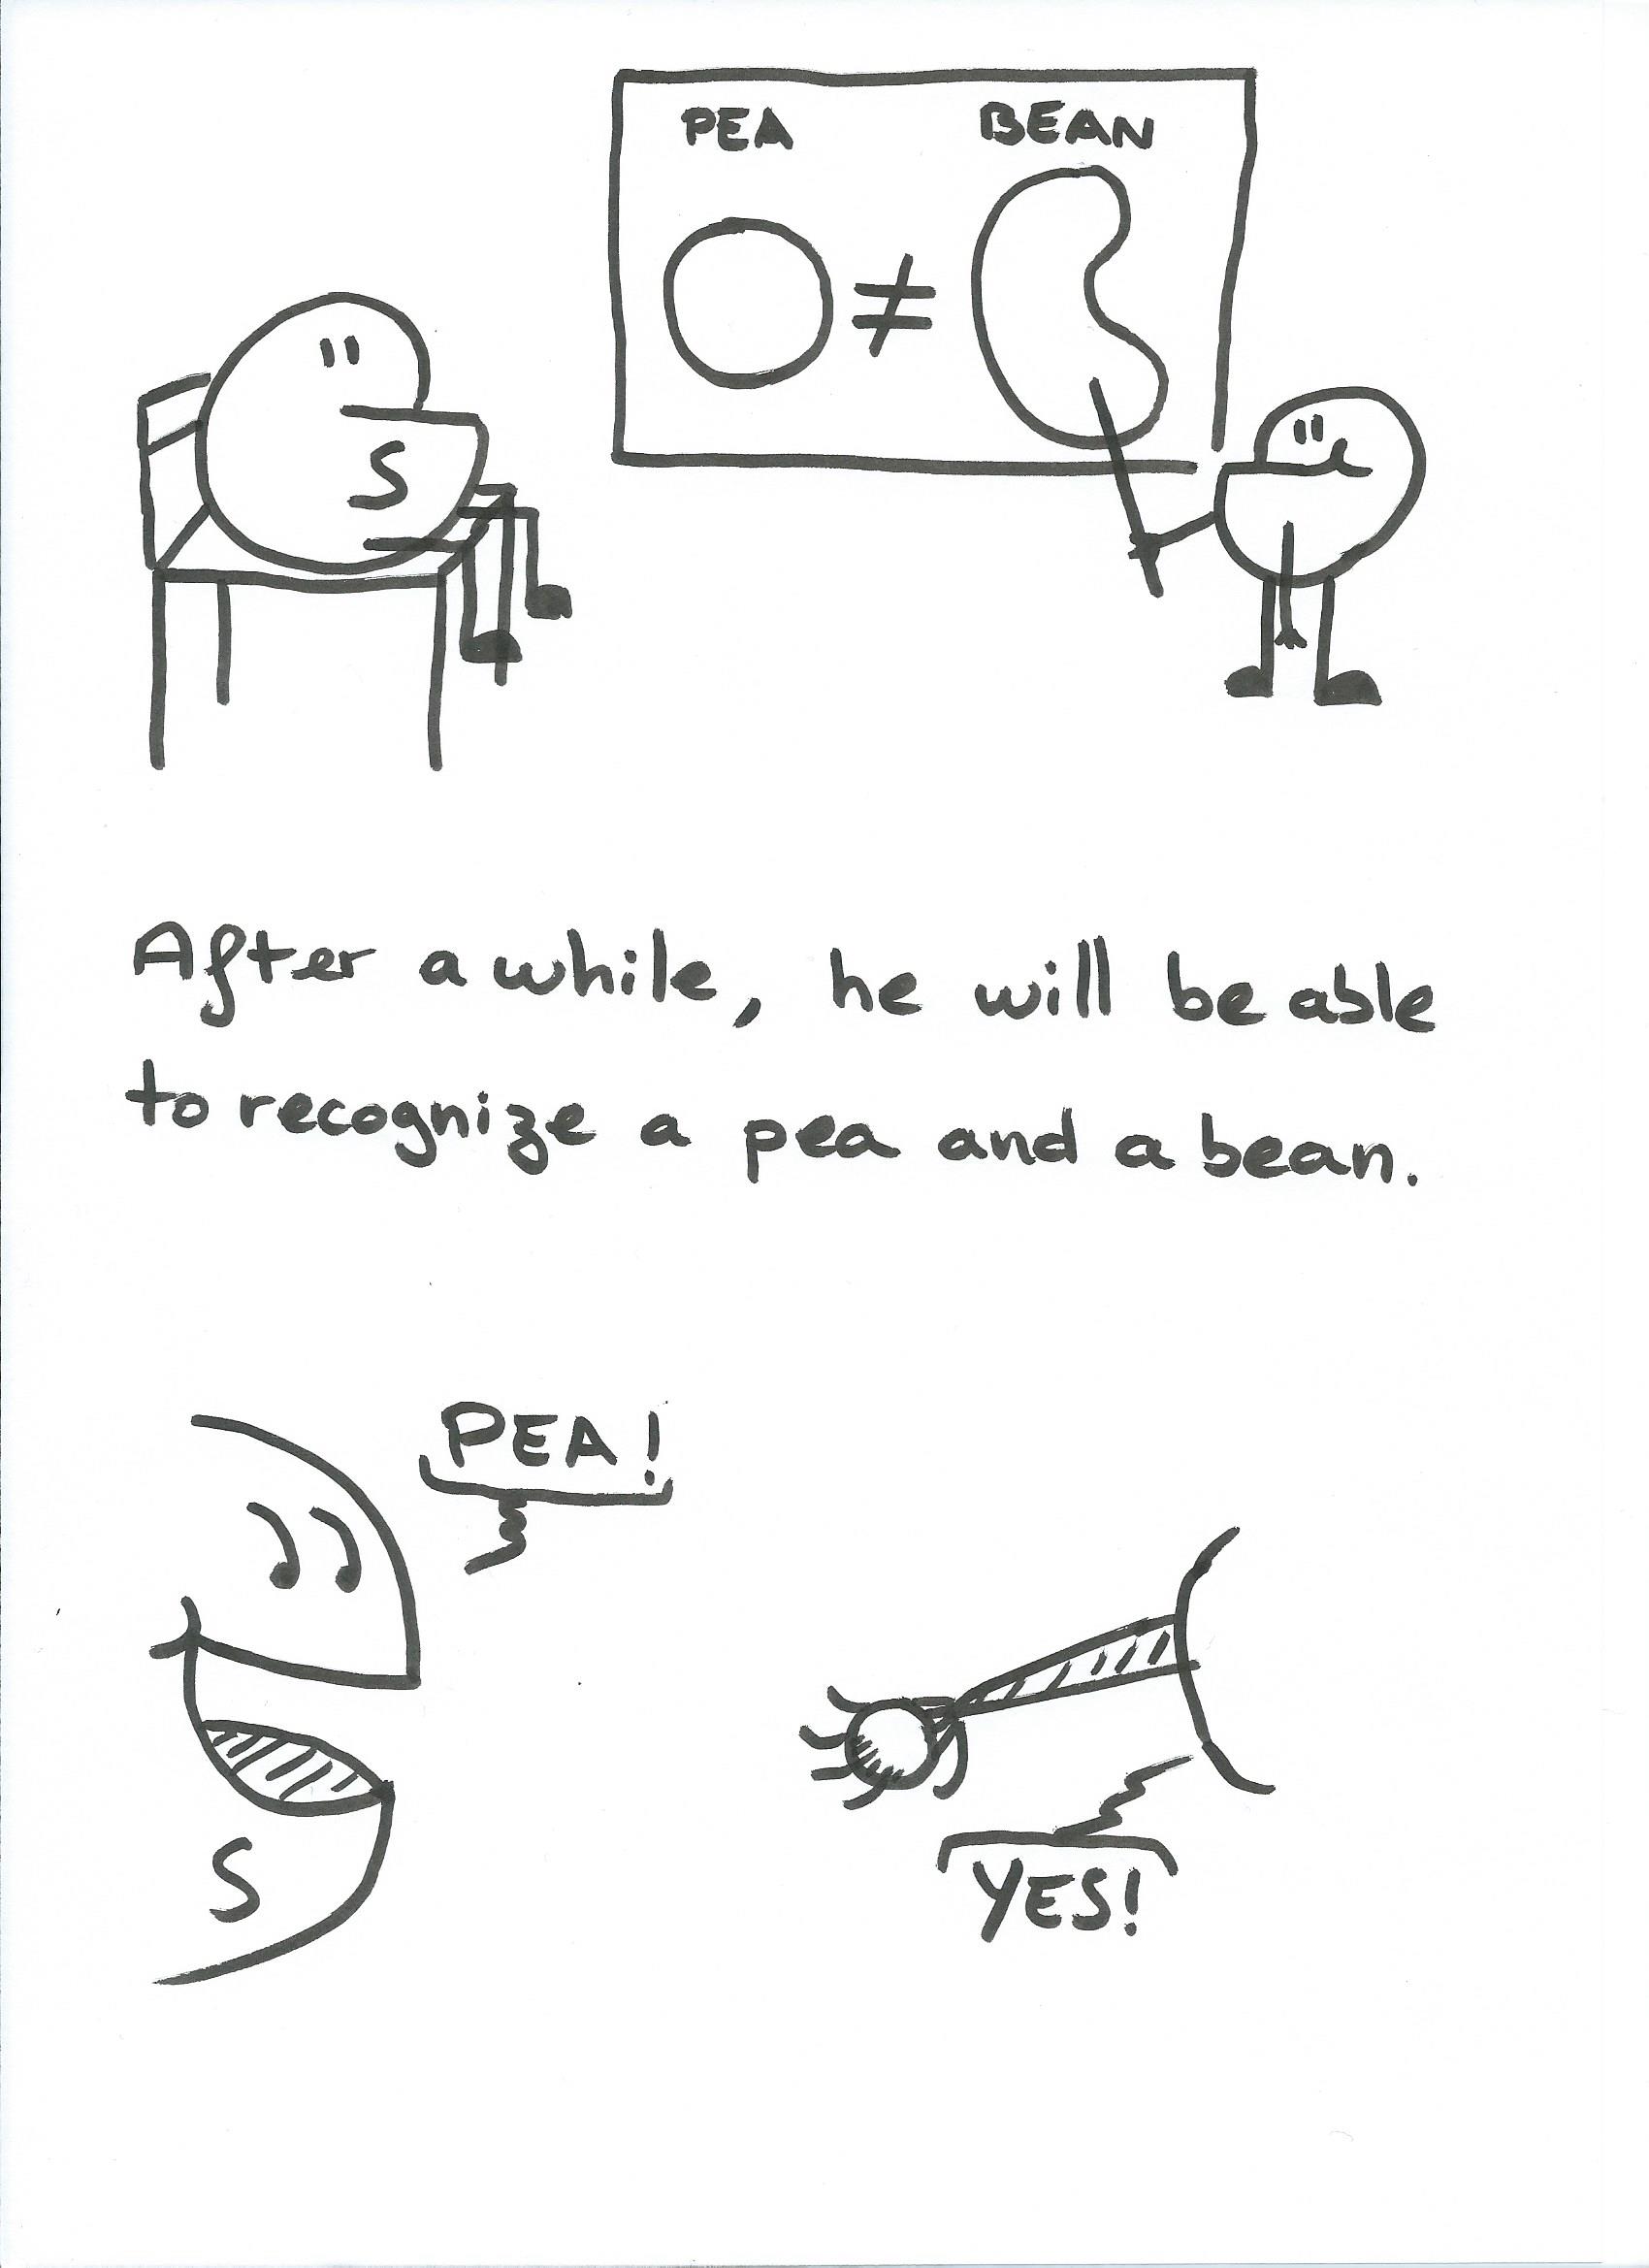 PEA BEAN
≠
S
After a while, he will be able
to recognize a pea and a bean.
PEA!
S
YES!